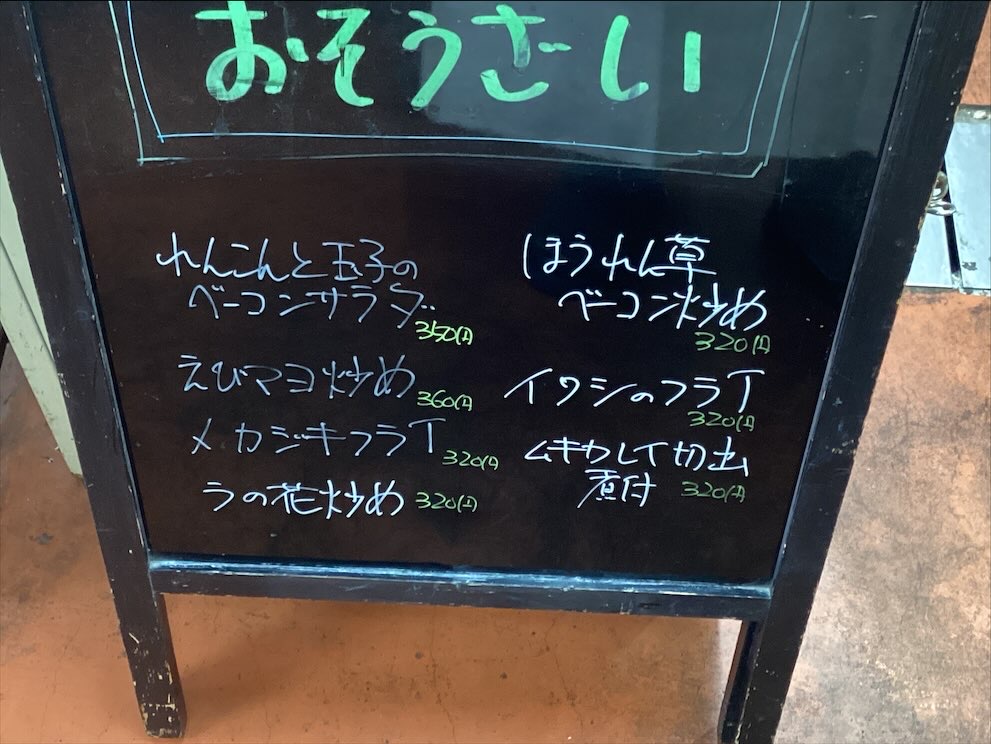 おそうざい
れんこんと玉子の
ベーコンサラダ
350円
えびマヨ炒め 360円
メカジキフライ 320円
うの花炒め 320円
ほうれん草
ベーコン炒め
320円
イワシのフライ
320円
ムキカレイ切出
煮付 320円